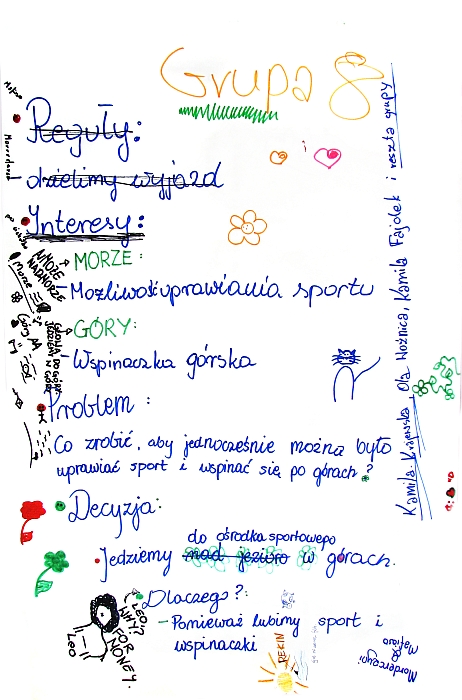 Grupa 8
Reguły:
- dzielimy wyjazd
i
Interesy:
MORZE:
- Możliwość uprawiania sportu
GÓRY:
- Wspinaczka górska
Problem:
Co zrobić, aby jednocześnie można było
uprawiać sport i wspinać się po górach?
Decyzja:
do ośrodka sportowego
Jedziemy nad jezioro w górach.
Dlaczego?:
- Ponieważ lubimy sport i
wspinaczki
Kamila Krajewska, Ola Nożnica, Kamila Fajdek i reszta grupy
MOŻE
NADMORZE
Morze
Góry
LEO:
WHY?
FOR
MONEY.
Leo
PEKIN